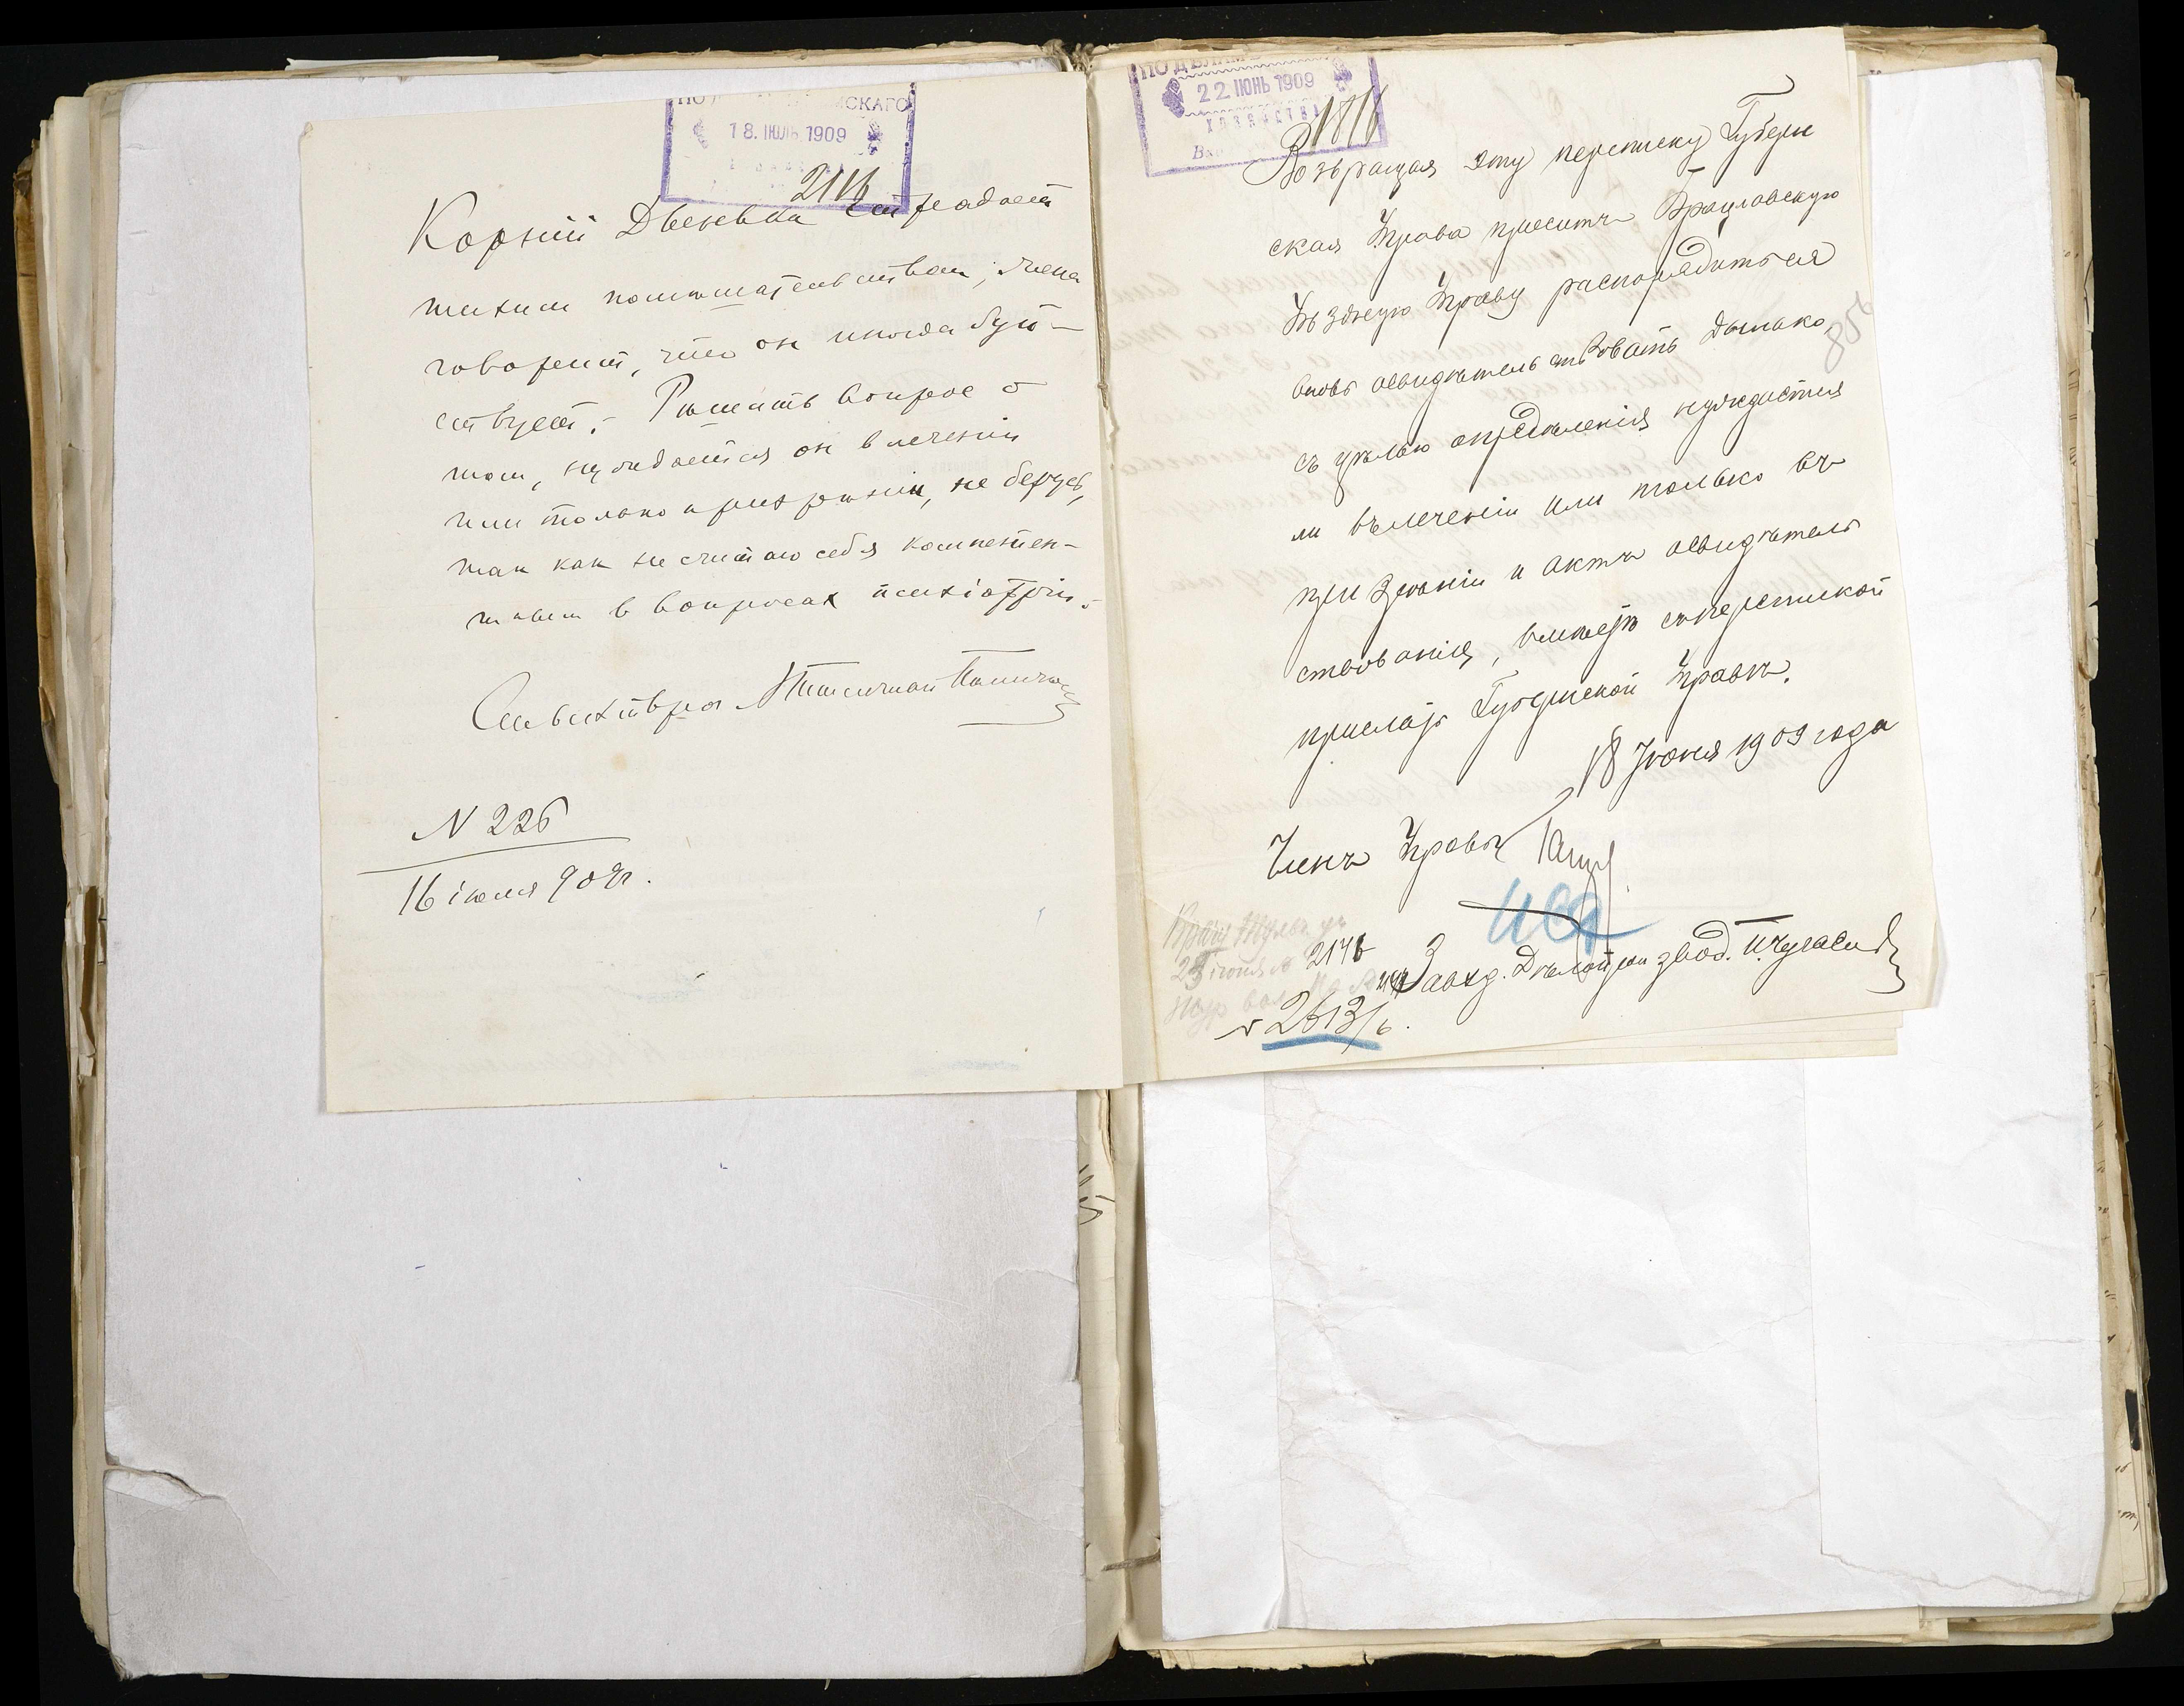 СКАГО
18. ІЮЛЬ 1909
2116
Корній страдаетъ
тихим помѣшательством; жена
говорит, что он иногда буй-
ствует. Рѣшить вопрос о
том, нуждается он в леченіи
или только призрѣніи, не берусь,
так как не считаю себя компетен-
тным в вопросах психіатріи.
N 226
16 іюля 909 г.
ПО ДѢЛАМ
22 ІЮНЬ 1909
ХОЗЯЙСТВА
1816
Возвращая эту переписку Губерн
ская Управа проситъ Брацлавскую
Уѣздную Управу распорядиться
вновь освидѣтельствовать
съ цѣлью опредѣленія нуждается
ли въ леченіи или только въ
призрѣніи и актъ освидѣтель
ствованія, вмѣстѣ съ перепиской
прислать Губернской Управѣ.
18 Іюня 1909 года
Членъ Управы
Завѣд. Дѣлопроизвод.
2176
№ 2613/6.